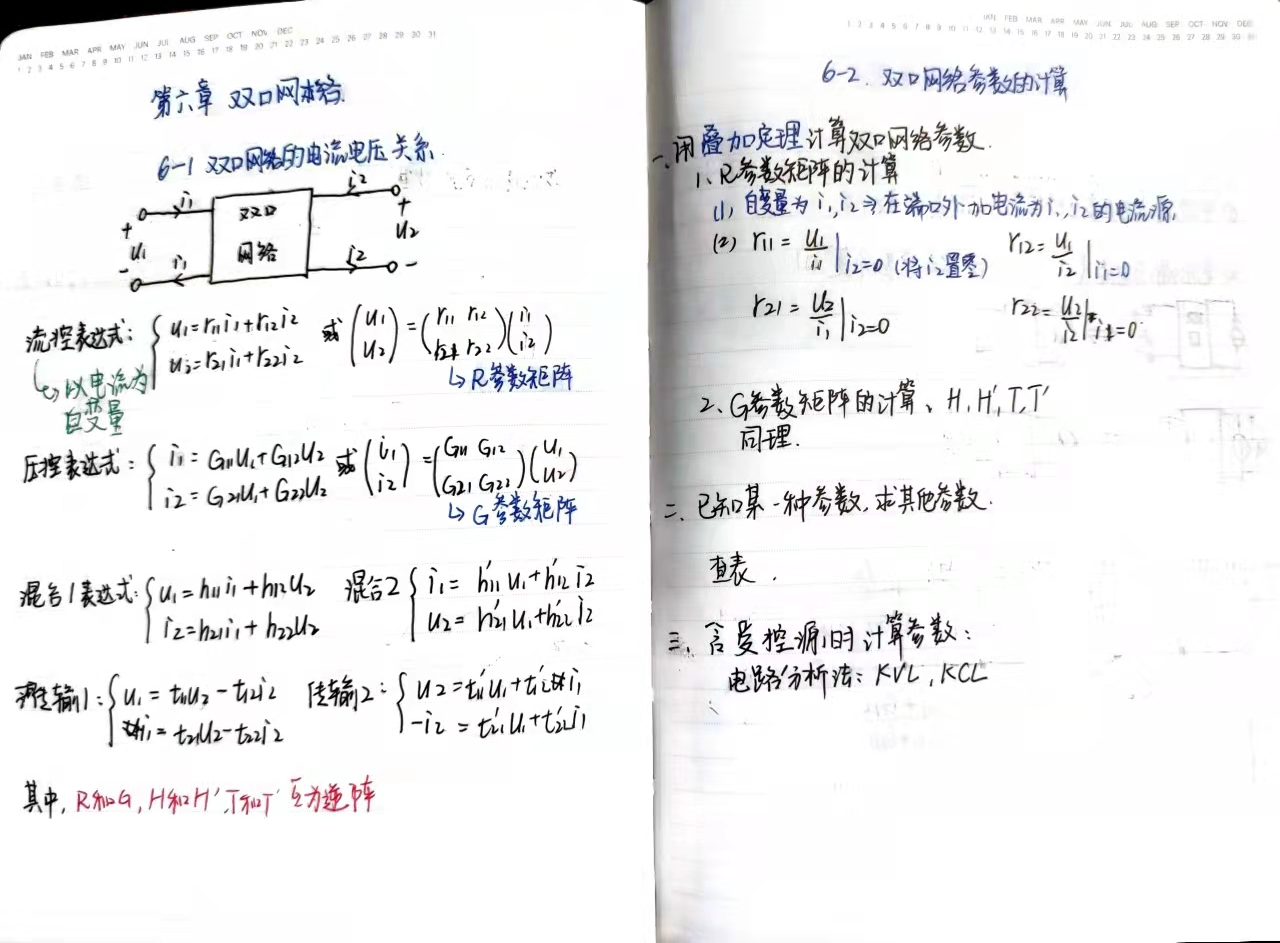 JAN FEB MAR APR MAY JUN JUL AUG SEP OCT NOV DEC
1 2 3 4 5 6 7 8 9 10 11 12 13 14 15 16 17 18 19 20 21 22 23 24 25 26 27 28 29 30 31
第六章 双口网络
6-1 双口网络的电流电压关系
i₁ i₂
+ u₁ - 双口网络 + u₂ -
i₁ i₂
流控表达式: { u₁=r₁₁i₁+r₁₂i₂ 或 (u₁ u₂) = (r₁₁ r₁₂ r₂₁ r₂₂)(i₁ i₂)
u₂=r₂₁i₁+r₂₂i₂
↳ R参数矩阵
↳ 以电流为
自变量
压控表达式: { i₁ = G₁₁u₁+G₁₂u₂ 或 (i₁ i₂) = (G₁₁ G₁₂ G₂₁ G₂₂)(u₁ u₂)
i₂ = G₂₁u₁+G₂₂u₂
↳ G参数矩阵
混合1表达式: { u₁=h₁₁i₁+h₁₂u₂ 混合2 { i₁= h'₁₁u₁+h'₁₂i₂
i₂=h₂₁i₁+h₂₂u₂ u₂= h'₂₁u₁+h'₂₂i₂
传输1: { u₁ = t₁₁u₂ - t₁₂i₂ 传输2: { u₂=t'₁₁u₁+t'₁₂i₁
i₁= t₂₁u₂-t₂₂i₂ -i₂ = t'₂₁u₁+t'₂₂i₁
其中, R和G, H和H', T和T' 互为逆阵
JAN FEB MAR APR MAY JUN JUL AUG SEP OCT NOV DEC
1 2 3 4 5 6 7 8 9 10 11 12 13 14 15 16 17 18 19 20 21 22 23 24 25 26 27 28 29 30 31
6-2. 双口网络参数的计算
一、用叠加定理计算双口网络参数.
1、R参数矩阵的计算
(1) 自变量为i₁,i₂ ⇒ 在端口外加电流为i₁,i₂的电流源
(2) r₁₁ = u₁/i₁ | i₂=0 (将i₂置零) r₁₂= u₁/i₂ | i₁=0
r₂₁ = u₂/i₁ | i₂=0 r₂₂= u₂/i₂ | i₁=0
2、G参数矩阵的计算、H,H',T,T'
同理.
二、已知某一种参数,求其他参数.
查表.
三、含受控源时计算参数:
电路分析法: KVL, KCL